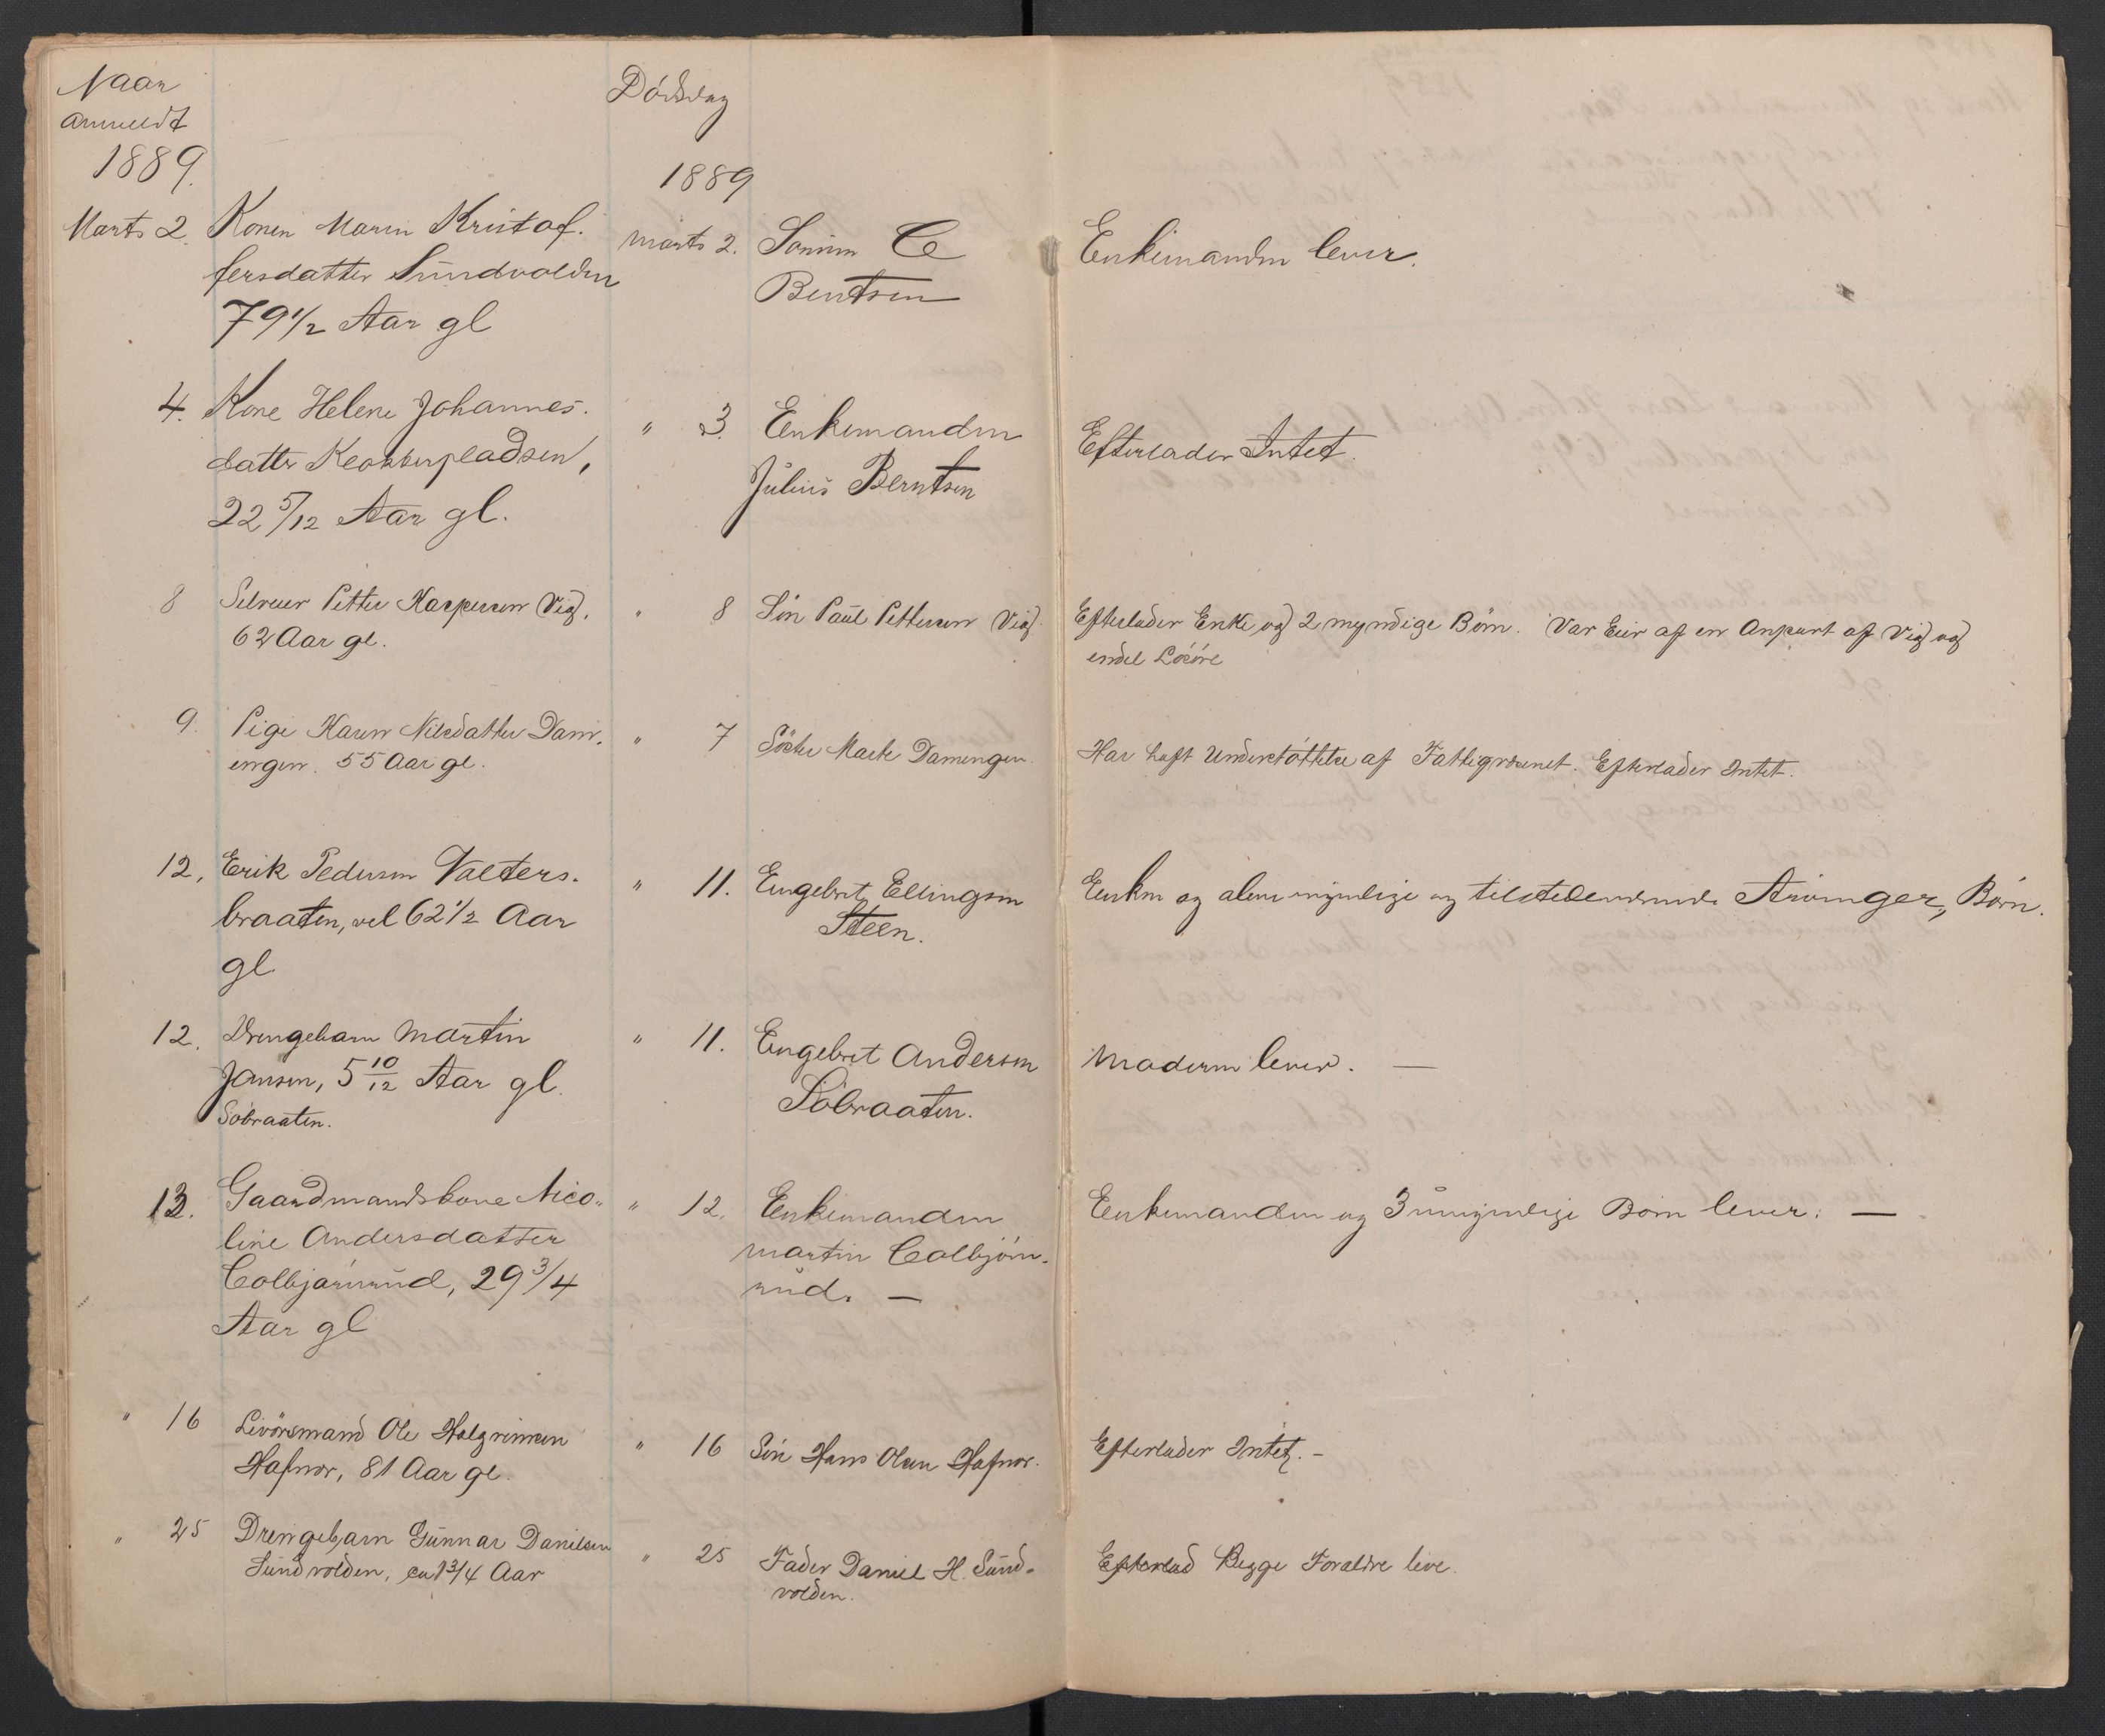 Naar
anmeldt
1889.
Dödsdag
1889
Marts 2. Konen Maren Kristof-
fersdatter Sundvolden
79 1/2 Aar gl
Marts 2. Sønnen C
Bentsen
Enkemanden lever.
4. Kone Helene Johannes-
datter Klokkerpladsen,
22 5/12 Aar gl.
" 3. Enkemanden
Julius Berntsen
Efterlader Intet.
8 Selveier Petter Kaspersen Vig,
62 Aar gl.
" 8 Sön Paul Pettersen Vig.
Efterlader Enke og 2 myndige Börn. Var Eier af en Anpart af Vig og
endel Lösöre
9. Pige Karen Nilsdatter Dam-
engen. 55 Aar gl.
" 7 Söster Marte Damengen.
Har haft Understöttelse af Fattigvæsenet. Efterlader Intet.
12, Erik Pedersen Valters-
braaten, vel 62 1/2 Aar
gl
" 11. Engebret Ellingsen
Steen.
Enken og alene myndige og tilstedeværende Arvinger, Börn.
12. Drengebarn Martin
Jansen, 5 10/12 Aar gl.
Söbraaten.
" 11. Engebret Andersen
Söbraaten.
Moderen lever. —
13. Gaardmandskone Nico-
line Andersdatter
Colbjørnrud, 29 3/4
Aar gl
" 12. Enkemanden
Martin Colbjörn-
rud. —
Enkemanden og 3 umyndige Börn lever. —
" 16 Livörsmand Ole Halgrimsen
Hafnor, 81 Aar gl.
" 16 Sön Hans Olsen Hafnor.
Efterlader Intet. -
" 25 Drengebarn Gunnar Danielsen
Sundvolden, ca 1 3/4 Aar
" 25 Fader Daniel H. Sund-
volden.
Efterlad Begge Foraldre leve.